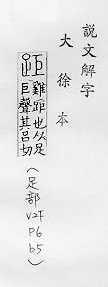 説文解字
大徐本
距 雞距也从足
巨聲其呂切
（足部 V2下 P6 b5）